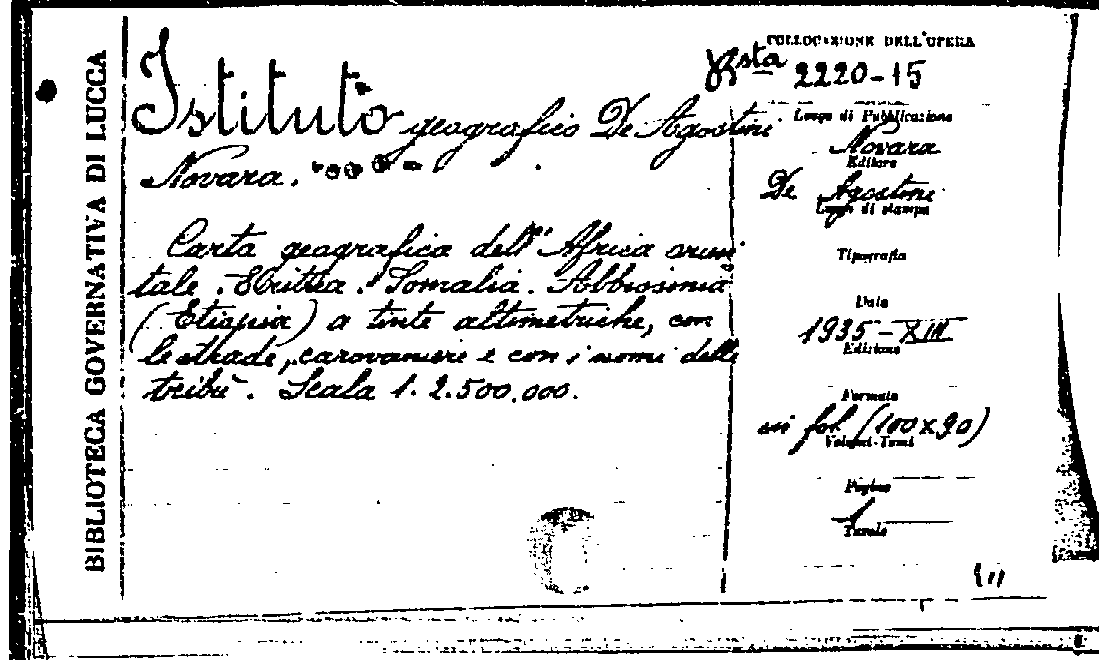 BIBLIOTECA GOVERNATIVA DI LUCCA
Istituto geografico De Agostini
Novara.
Carta geografica dell'Africa orien
tale. Eritrea. Somalia. Abbissinia
(Etiopia) a tinte altimetriche, con
le strade, carovaniere e con i nomi delle
tribù. Scala 1. 2.500.000.
COLLOCAZIONE DELL'OPERA
sta 2220-15
Luogo di Pubblicazione
Novara
Editore
De Agostini
Luogo di stampa
Tipografia
Data
1935-XIII
Edizione
Formato
in fol. (100x90)
Volumi-Tomi
Pagine
1
Tavole